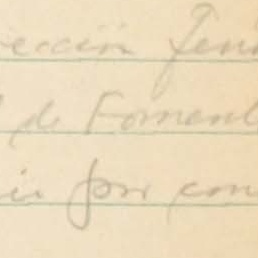 ección Gen
de Foment
por con